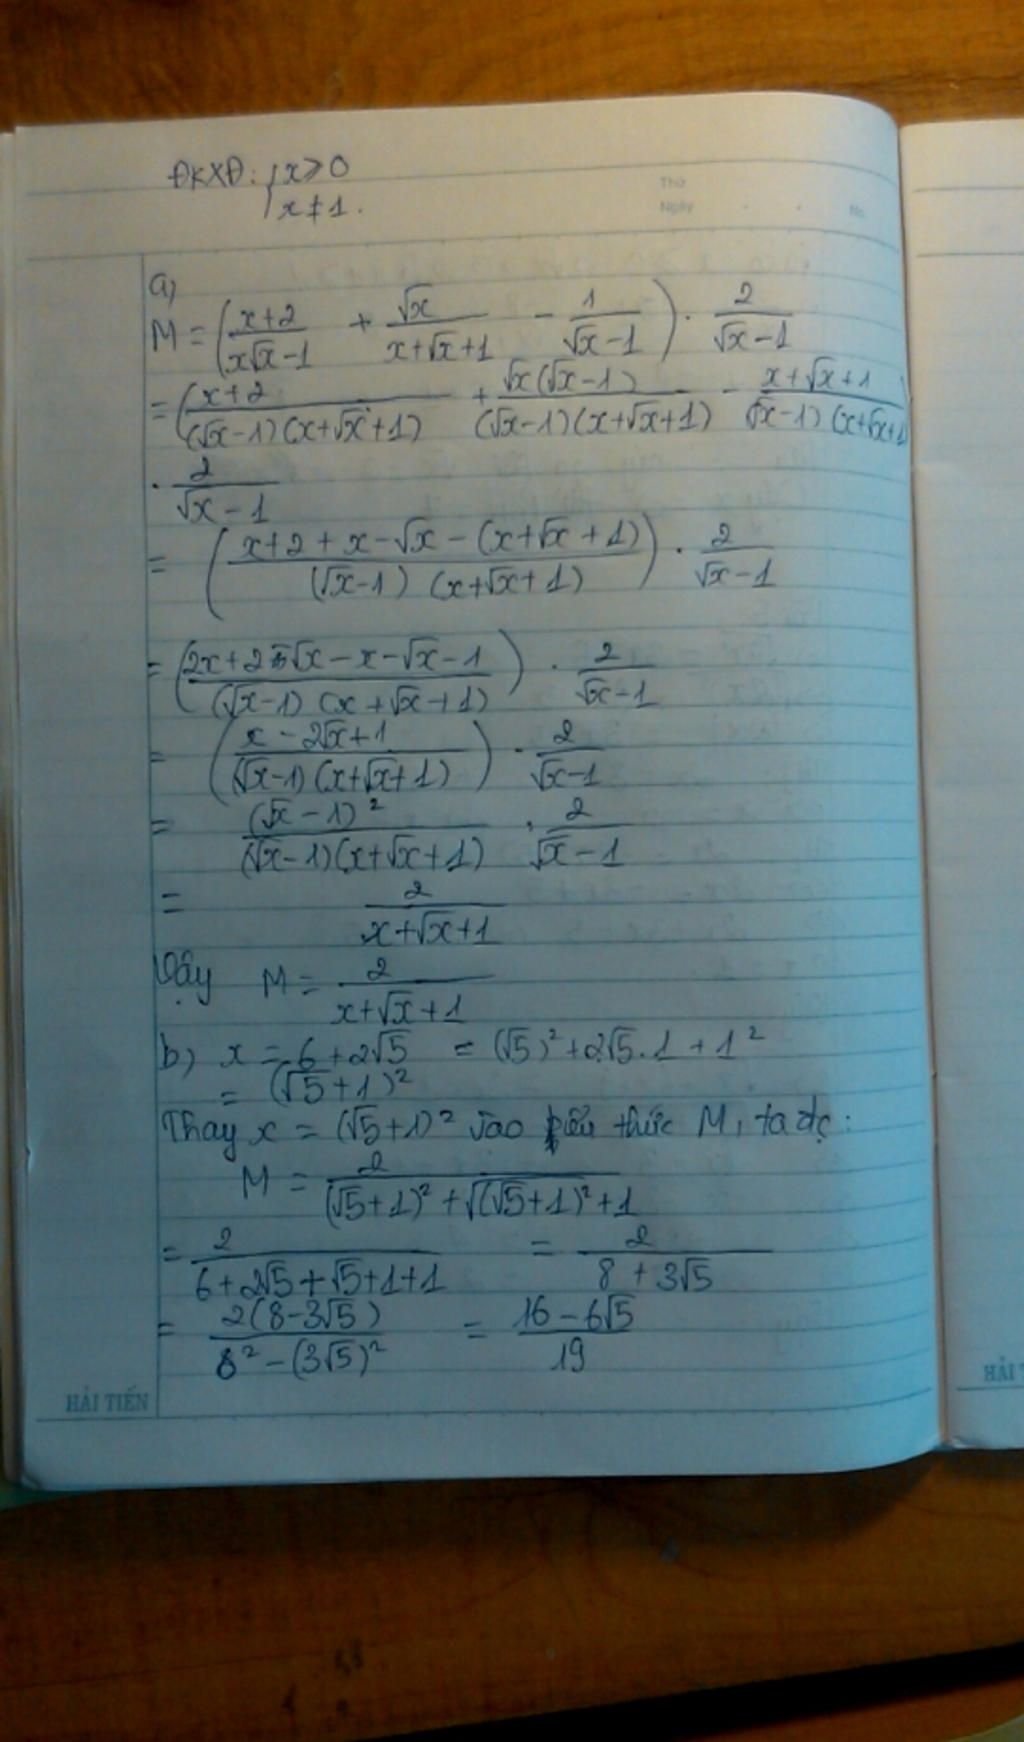 ĐKXĐ: { x ≥ 0
x ≠ 1.
Thứ
Ngày . . No.
a)
M = ( (x+2)/(x√x - 1) + √x/(x+√x+1) - 1/(√x-1) ) . 2/(√x-1)
= ( (x+2)/((√x-1)(x+√x+1)) + √x(√x-1)/((√x-1)(x+√x+1)) - (x+√x+1)/((√x-1)(x+√x+1))
. 2/(√x-1)
= ( (x+2+x-√x-(x+√x+1))/((√x-1)(x+√x+1)) ) . 2/(√x-1)
= ( (2x+2-√x-x-√x-1)/((√x-1)(x+√x+1)) ) . 2/(√x-1)
= ( (x-2√x+1)/((√x-1)(x+√x+1)) ) . 2/(√x-1)
= (√x-1)²/((√x-1)(x+√x+1)) . 2/(√x-1)
= 2/(x+√x+1)
Vậy M = 2/(x+√x+1)
b) x = 6+2√5 = (√5)²+2√5.1+1²
= (√5+1)²
Thay x = (√5+1)² vào biểu thức M, ta đc:
M = 2/((√5+1)²+√((√5+1)²)+1)
= 2/(6+2√5+√5+1+1) = 2/(8+3√5)
= 2(8-3√5)/(8²-(3√5)²) = (16-6√5)/19
HẢI TIẾN
HẢI T